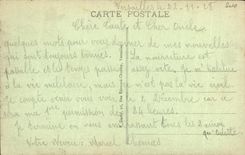 Versailles le 22-11-25
CARTE POSTALE
Chère Tante et Cher Oncle
quelques mots pour vous donner de mes nouvelles
qui sont toujours bonnes. La nourriture est
passable et le temps passe assez vite. Je m'habitue
à la vie militaire, mais ce n'est pas la vie civile
Je compte venir vous voir le 2 Décembre car
ma 1ère permission de 24 heures.
Je termine en vous embrassant tous les 2 ainsi
qu'
Votre Neveu: Marcel Thomas